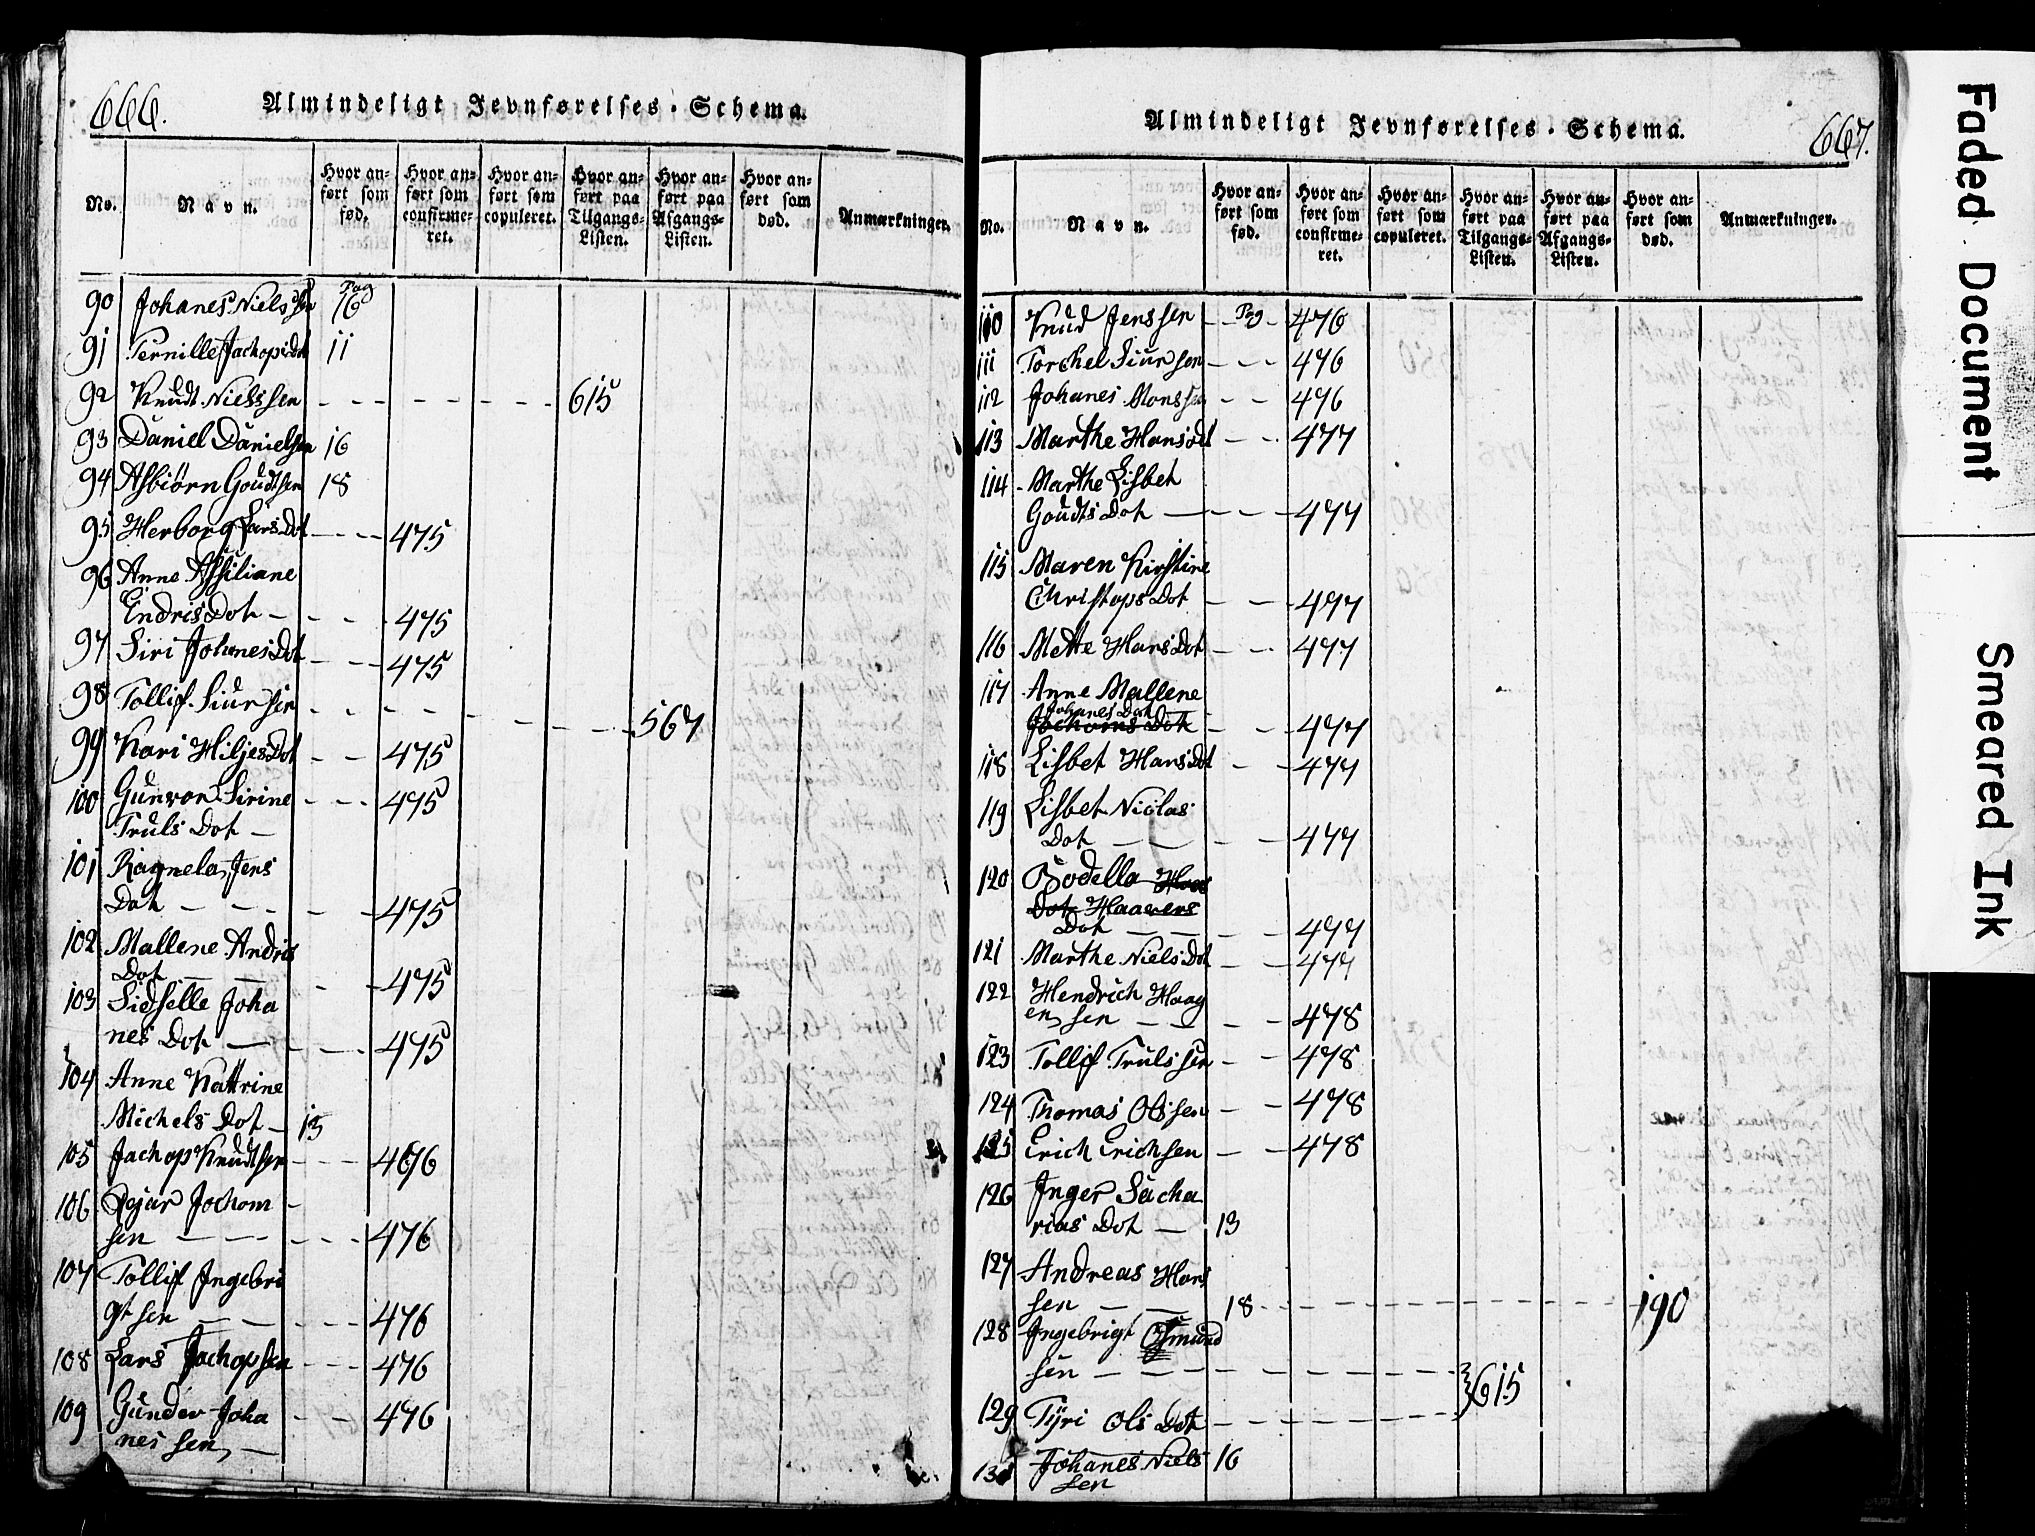 666.
Almindeligt Jevnførelses-Schema.
No. Navn. Hvor anført som fød. Hvor anført som confirmeret. Hvor anført som copuleret. Hvor anført paa Tilgangs-Listen. Hvor anført paa Afgangs-Listen. Hvor anført som død. Anmærkninger.
Pag
90 Johanes Nielssen 16
91 Pernille JachopsDot 11
92 Knudt Nielssen 615
93 Daniel Danielsen 16
94 Asbiørn Goudtsen 18
95 Herborg LarsDot 475
96 Anne Assiliane
EndrisDot 475
97 Siri JohanesDot 475
98 Tollif Siursen 567
99 Kari HiljesDot 475
100 Gunvor Sirine 475
Truls Dot
101 Ragnela Jens
Dot 475
102 Mallene Andris
Dot 475
103 Sidselle Joha
nes Dot 475
104 Anne Kattrine
Michels Dot 13
105 Jachop Knudtsen 476
106 Ajar Jochom
sen 476
107 Tollif Ingebri
gtsen 476
108 Lars Jachopsen 476
109 Gunder Joha 476
nessen
Almindeligt Jevnførelses-Schema.
667.
No. Navn. Hvor anført som fød. Hvor anført som confirmeret. Hvor anført som copuleret. Hvor anført paa Tilgangs-Listen. Hvor anført paa Afgangs-Listen. Hvor anført som død. Anmærkninger.
110 Knud Jenssen Pag 476
111 Torchel Siursen 476
112 Johanes Monssen 476
113 Marthe Hansdot 477
114 Marthe Lisbet
Goudts Dot 477
115 Maren Kirstine
Christops Dot 477
116 Mette HansDot 477
117 Anne Mallene
Johanes Dot
Jochoms Dot 477
118 Lisbet HansDot 477
119 Lisbet Nicolas
Dot 477
120 Bodella Haas
Dot Haavers
Dot 477
121 Marthe NielsDot 477
122 Hendrich Haag
ensen 478
123 Tollif Trulssen 478
124 Thomas Olssen 478
125 Erich Erichsen 478
126 Inger Sacha
rias Dot 13
127 Andreas Hans
sen 18 190
128 Ingebrigt Osmund
sen 615
129 Tyri Ols Dot
130 Johanes Niels 16
sen
Faded Document
Smeared Ink